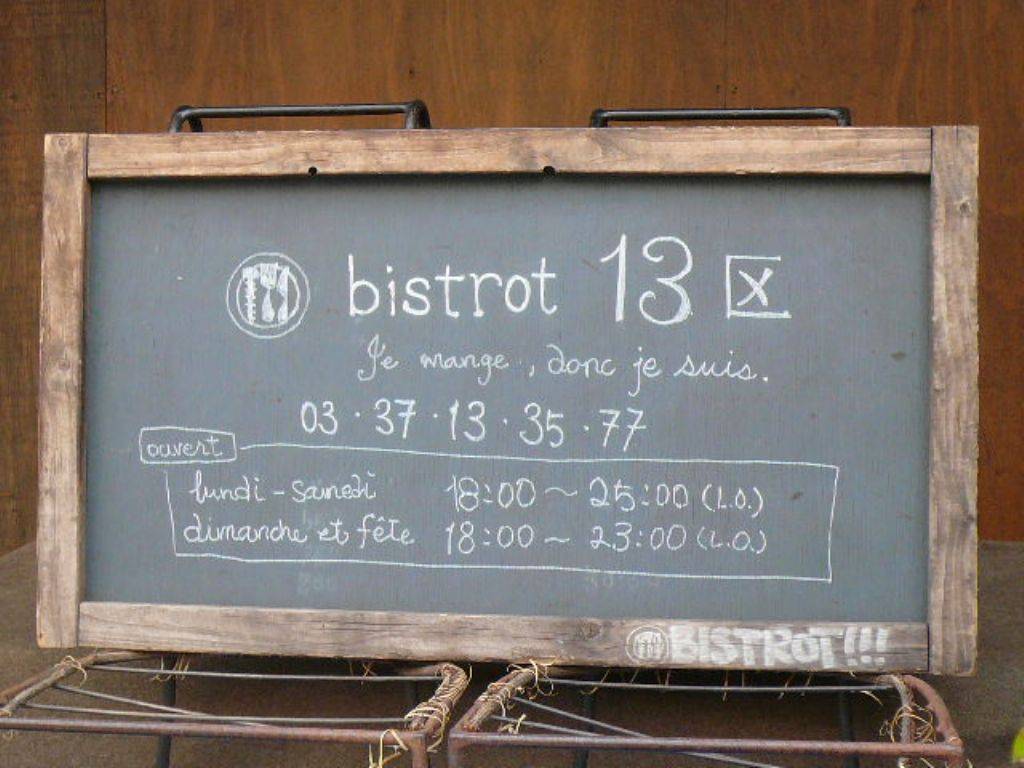 bistrot 13 x
Je mange, donc je suis.
03・37・13・35・77
ouvert
lundi - samedi 18:00～25:00 (L.O.)
dimanche et fête 18:00～23:00 (L.O.)
BISTROT!!!